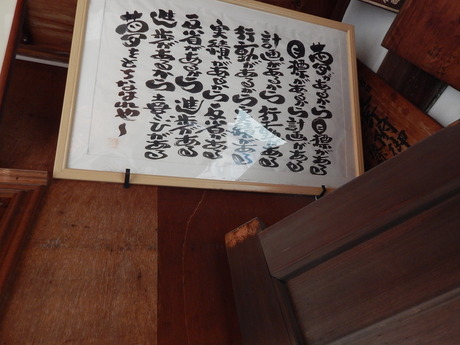 夢があるから目標がある
目標があるから計画がある
計画があるから行動がある
行動があるから実績がある
実績があるから反省がある
反省があるから進歩がある
進歩があるから喜びがある
夢をもちなはれや〜